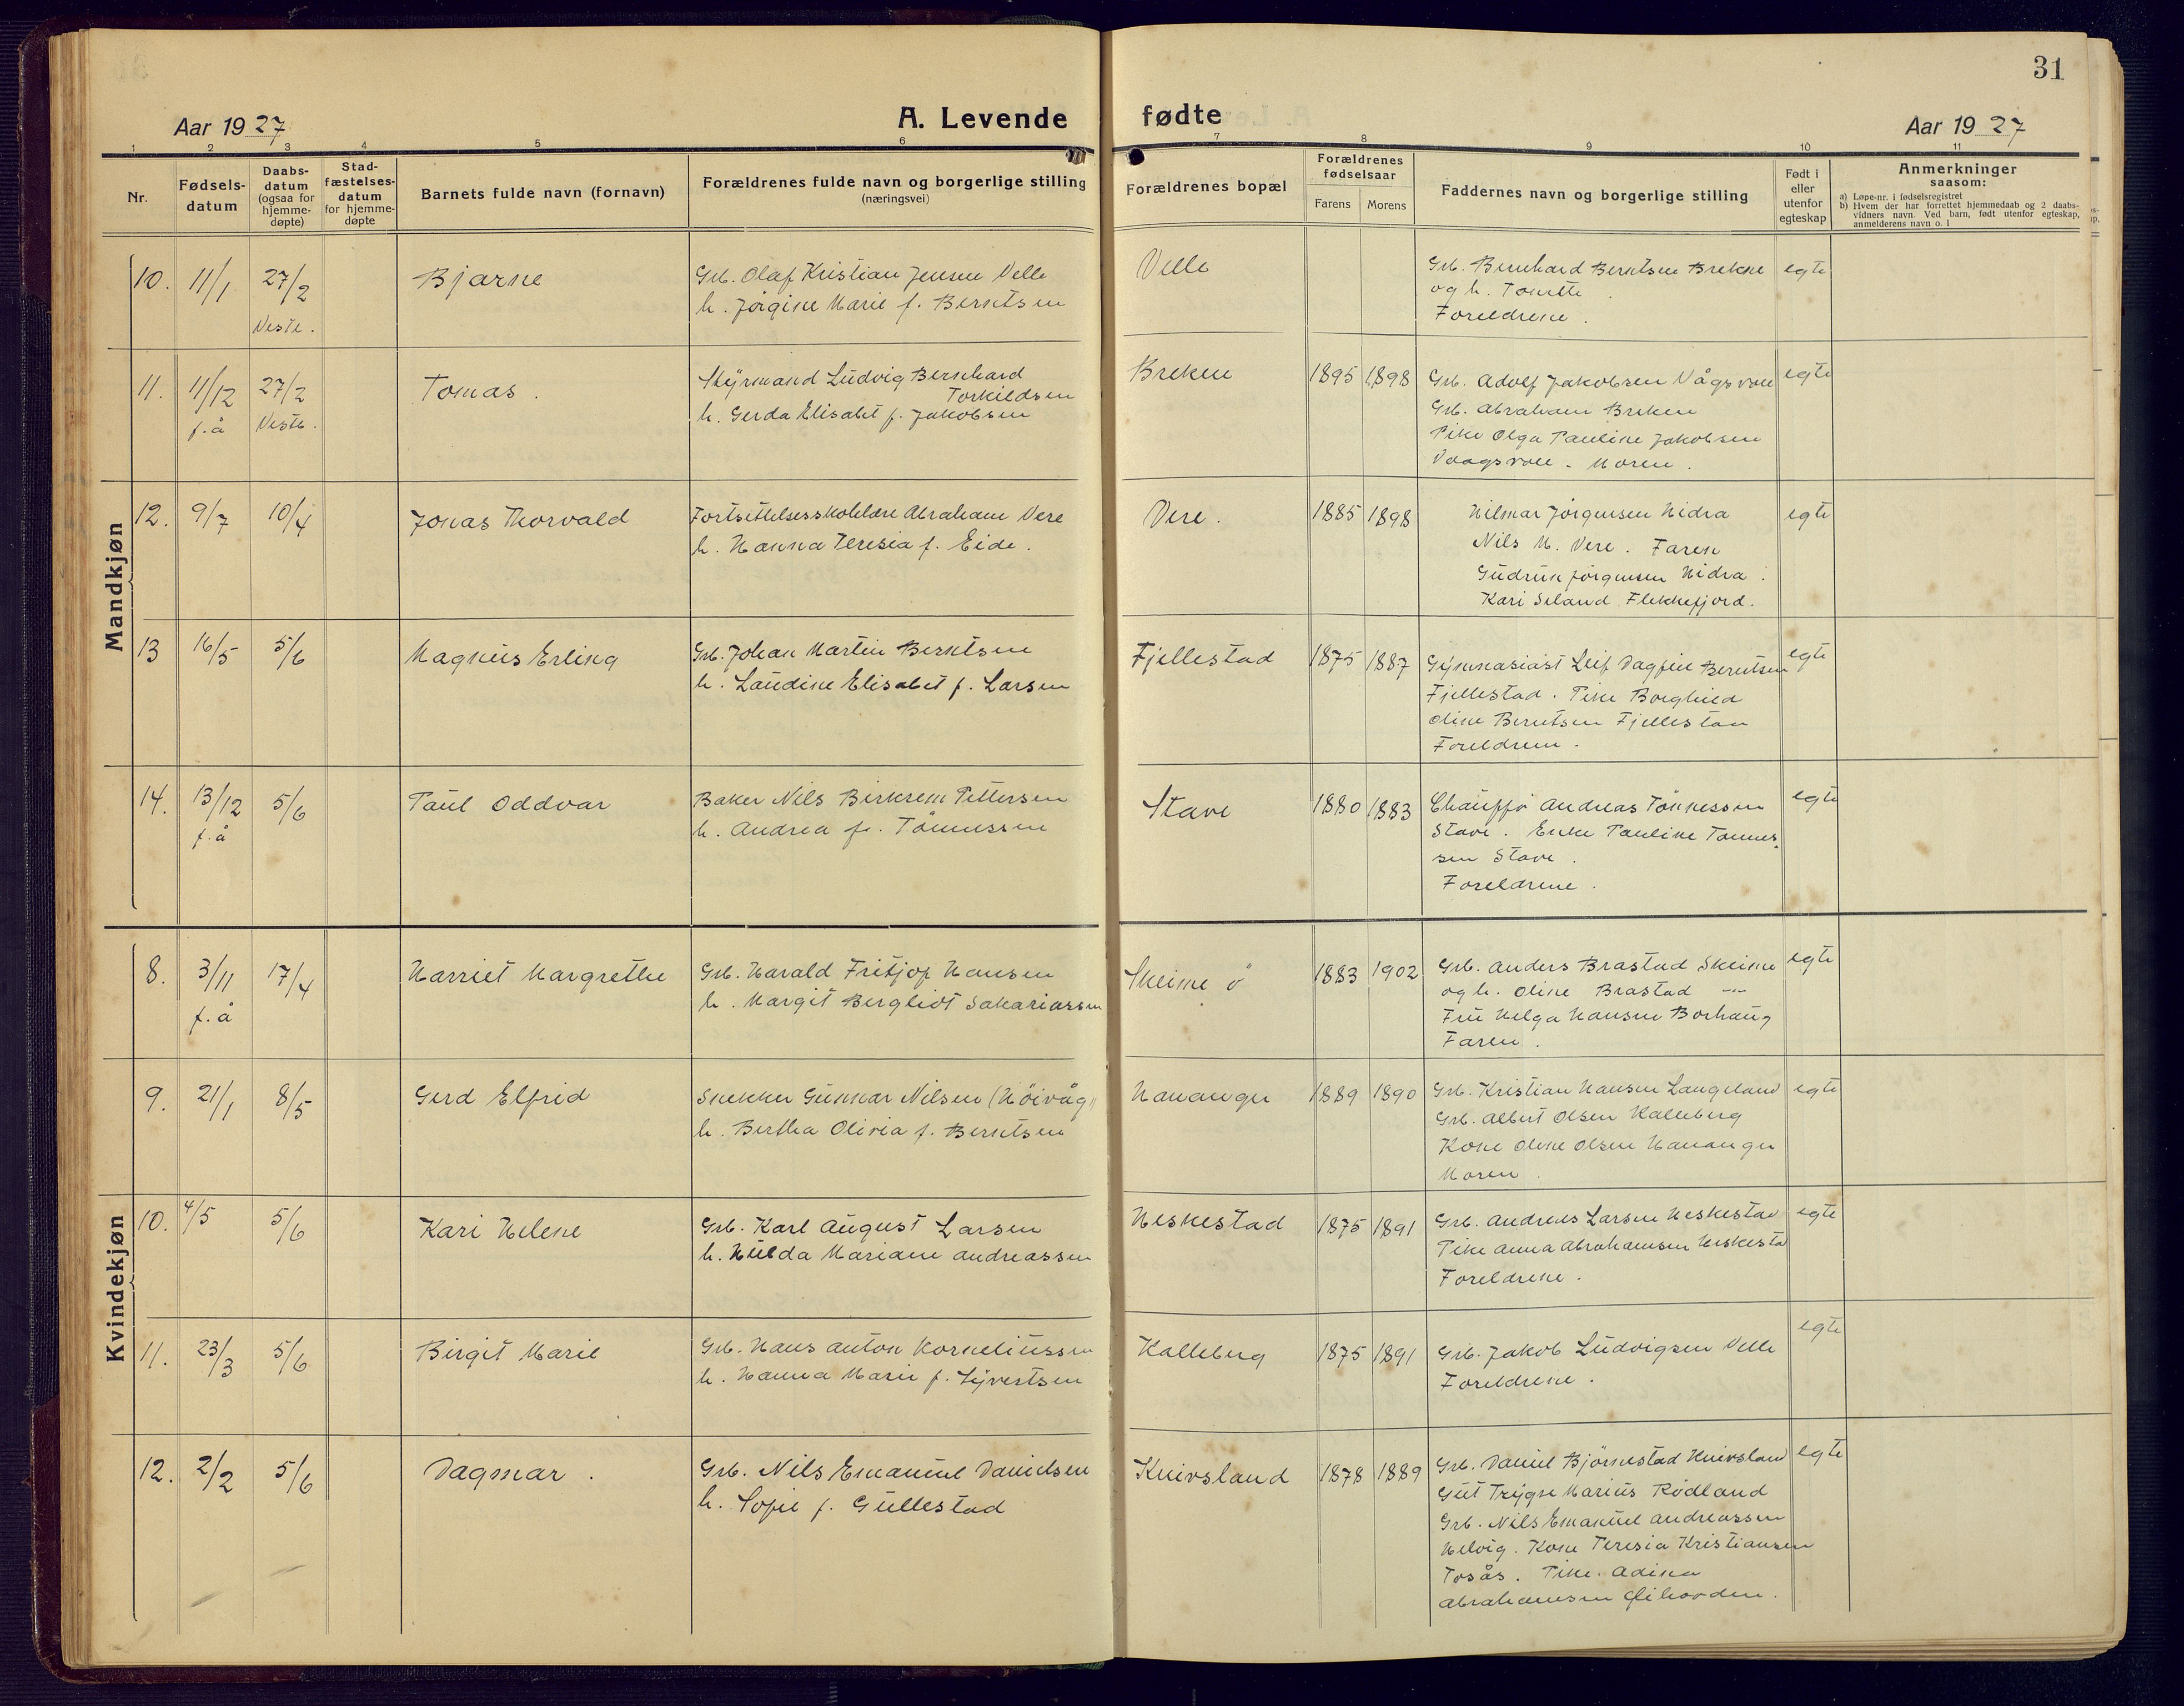 31
Aar 1927
A. Levende
fødte
Aar 1927
1 2 3 4 5 6 7 8 9 10 11
Nr.
Fødsels-
datum
Daabs-
datum
(ogsaa for
hjemme-
døpte)
Stad-
fæstelses-
datum
for hjemme-
døpte
Barnets fulde navn (fornavn)
Forældrenes fulde navn og borgerlige stilling
(næringsvei)
Forældrenes bopæl
Forældrenes
fødselsaar
Farens Morens
Faddernes navn og borgerlige stilling
Født i
eller
utenfor
egteskap
Anmerkninger
saasom:
a) Løpe-nr. i fødselsregistret
b) Hvem der har forrettet hjemmedaab og 2 daabs-
vidners navn. Ved barn, født utenfor egteskap,
anmelderens navn o. l
Mandkjøn
10. 11/1 27/2 Bjarne
Veste.
Grb. Olaf Kristian Jensen Velle
h. Jørgine Marie f. Berntsen
Velle
Grb. Bernhard Berntsen Brekne
og h. Tonette
Foreldrene.
egte
11. 11/12 27/2 Tomas.
f.å Veste.
Styrmand Ludvig Bernhard
Torkildsen
h. Gerda Elisabet f. Jakobsen
Brekne 1895 1898
Grb. Adolf Jakobsen Vågsvoll
Grb. Abraham Brekne
Pike Olga Pauline Jakobsen
Vaagsvoll - Moren.
egte
12. 9/7 10/4 Jonas Thorvald
Fortsettelsesskolelære Abraham Vere
h. Hanna Teresia f. Eide.
Vere. 1885 1898
Hilmar Jørgensen Hidra
Nils M. Vere. Faren
Gudrun Jørgensen Hidra.
Kari Seland Flekkefjord.
egte
13 16/5 5/6 Magnus Erling
Grb. Johan Martin Berntsen
h. Laudine Elisabet f. Larsen
Fjellestad 1875 1887
Gymnasiast Leif Dagfin Berntsen
Fjellestad. Pike Borghild
Oline Berntsen Fjellestad
Foreldrene.
egte
14. 13/12 5/6 Paul Oddvar
f.å
Baker Nils Birkrem Pettersen
h. Andrea f. Tønnessen
Stave 1880 1883
Chauffør Andreas Tönnessen
Stave. Enke Pauline Tønnes-
sen Stave.
Foreldrene.
egte
Kvindekjøn
8. 3/11 17/4 Harriet Margrethe
f.å
Grb. Harald Fritjof Hansen
h. Margit Bergliot Sakariassen
Skeime ö 1883 1902
Grb. Anders Brastad Skeime
og h. Oline Brastad -"-
Fru Helga Hansen Borhaug
Faren.
egte
9. 21/1 8/5 Gerd Elfrid
Snekker Gunnar Nilsen (Høivåg)
h. Bertha Olivia f. Berntsen
Hananger 1889 1890
Grb. Kristian Hansen Langeland
Grb. Albert Olsen Kalleberg
Kone Oline Olsen Hananger
Moren.
egte
10. 4/5 5/6 Kari Helene
Grb. Karl August Larsen
h. Hulda Mariane Andreassen
Heskestad 1875 1891
Grb. Andreas Larsen Heskestad
Pike Anna Abrahamsen Heskesta
Foreldrene.
egte
11. 23/3 5/6 Birgit Marie
Grb. Hans Anton Korneliussen
h. Hanna Marie f. Syvertsen
Kalleberg 1875 1891
Grb. Jakob Ludvigsen Velle
Foreldrene.
egte
12. 2/2 5/6 Dagmar.
Grb. Nils Emanuel Danielsen
h. Sofie f. Gullestad
Knivsland 1878 1889
Grb. Daniel Bjørnestad Knivsland
Gut Trygve Marius Rødland
Grb. Nils Emanuel Andreassen
Helvig. Kone Teresia Kristiansen
Tosås. Pike Adina
Abrahamsen
egte